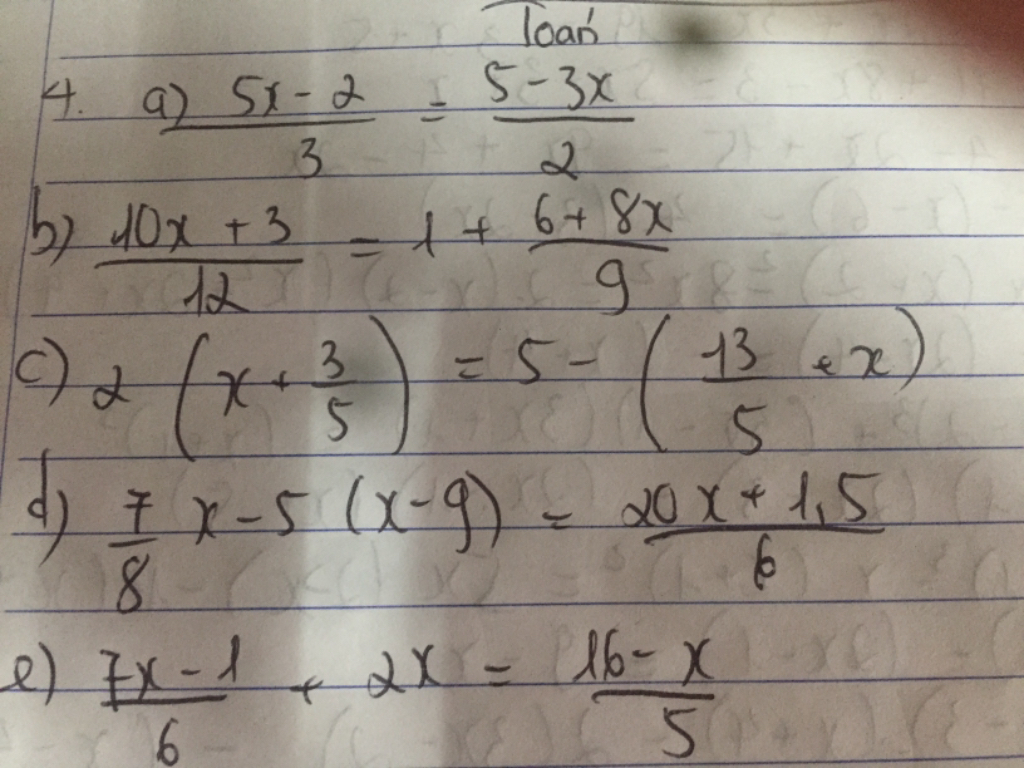 Toán
4. a) \frac{5x-2}{3} = \frac{5-3x}{2}
b) \frac{10x+3}{12} = 1 + \frac{6+8x}{9}
c) 2 \left( x + \frac{3}{5} \right) = 5 - \left( \frac{13}{5} + x \right)
d) \frac{7}{8} x - 5 (x-9) = \frac{20x+1,5}{6}
e) \frac{7x-1}{6} + 2x = \frac{16-x}{5}